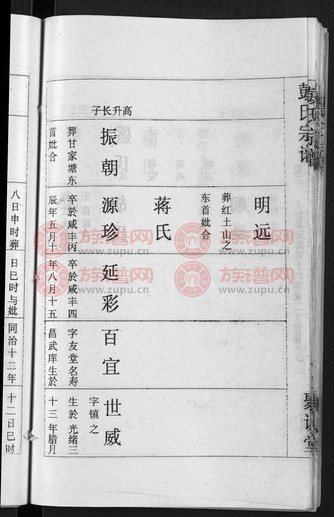 彭氏宗谱
堂
明远
葬红土山之
东首妣合
蒋氏
高升长子
振朝
葬甘家塘东
首妣合
源珍
卒於咸丰丙
辰年五月十
延彩
卒於咸丰四
年八月十五
百宜
字友堂名寿
昌武庠生於
世威
字镇之
生於光绪三
十三年腊月
八日申时葬
日巳时与妣
同治十二年
十二日巳时
族谱网
www.zupu.cn
族谱网
www.zupu.cn
族谱网
www.zupu.cn
族谱网
www.zupu.cn